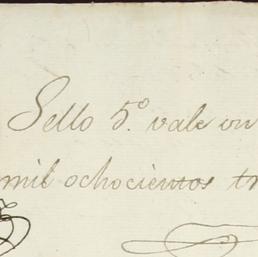 Sello 5º vale un
mil ochocientos tr